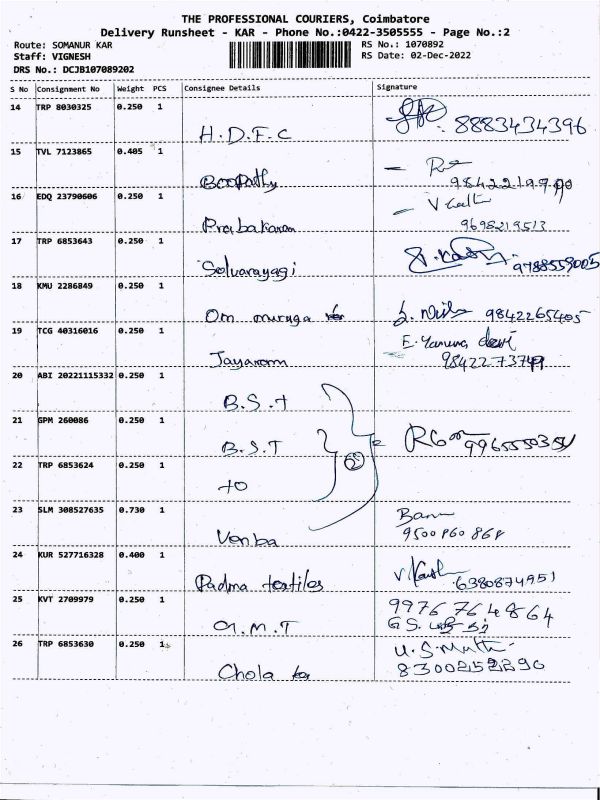 THE PROFESSIONAL COURIERS, Coimbatore
Delivery Runsheet - KAR - Phone No.:0422-3505555 - Page No.:2
Route: SOMANUR KAR RS No.: 1070892
Staff: VIGNESH RS Date: 02-Dec-2022
DRS No.: DCJB107089202
S No Consignment No Weight PCS Consignee Details Signature
14 TRP 8030325 0.250 1
H.D.F.C 8883434396
15 TVL 7123865 0.405 1
Boopathy
16 EDQ 23790606 0.250 1
Prabakaran 9698219513
17 TRP 6853643 0.250 1
Selvarayagi 9788559005
18 KMU 2286849 0.250 1
Om muruga 9842265405
19 TCG 40316016 0.250 1 E. Yamuna devi
Jayaram
20 ABI 20221115332 0.250 1
B.S.T
21 GPM 260086 0.250 1
B.S.T
22 TRP 6853624 0.250 1
to
23 SLM 308527635 0.730 1
Venba 9500860868
24 KUR 527716328 0.400 1
Padma textiles 6380874951
25 KVT 2709979 0.250 1 9976764864
G.M.T
26 TRP 6853630 0.250 1 U.S.Muthu
Chola tex